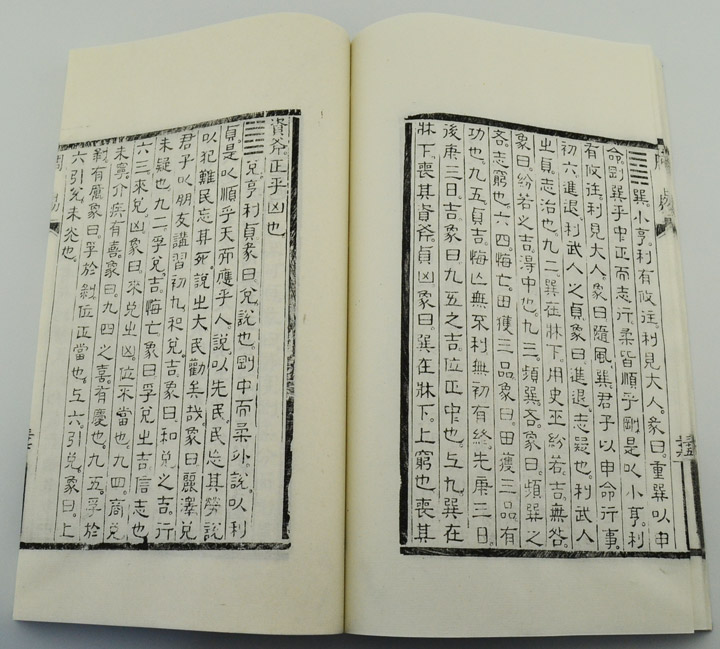 ䷸巽。小亨。利有攸往。利見大人。彖曰。重巽以申
命。剛巽乎中正而志行。柔皆順乎剛。是以小亨。利
有攸往。利見大人。象曰。隨風巽。君子以申命行事。
初六。進退。利武人之貞。象曰。進退。志疑也。利武人
之貞。志治也。九二。巽在牀下。用史巫紛若。吉。無咎。
象曰。紛若之吉。得中也。九三。頻巽。吝。象曰。頻巽之
吝。志窮也。六四。悔亡。田獲三品。象曰。田獲三品。有
功也。九五。貞吉。悔亡。無不利。無初有終。先庚三日。
後庚三日。吉。象曰。九五之吉。位正中也。上九。巽在
牀下。喪其資斧。貞凶。象曰。巽在牀下。上窮也。喪其
資斧。正乎凶也
䷹兌。亨。利貞。彖曰。兌說也。剛中而柔外。說以利
貞。是以順乎天而應乎人。說以先民。民忘其勞。說
以犯難。民忘其死。說之大。民勸矣哉。象曰。麗澤兌
君子以朋友講習。初九。和兌。吉。象曰。和兌之吉。行
未疑也。九二。孚兌。吉。悔亡。象曰。孚兌之吉。信志也
六三。來兌。凶。象曰。來兌之凶。位不當也。九四。商兌
未寧。介疾有喜。象曰。九四之喜。有慶也。九五。孚於
剝。有厲。象曰。孚於剝。位正當也。上六。引兌。象曰。上
六引兌。未光也。